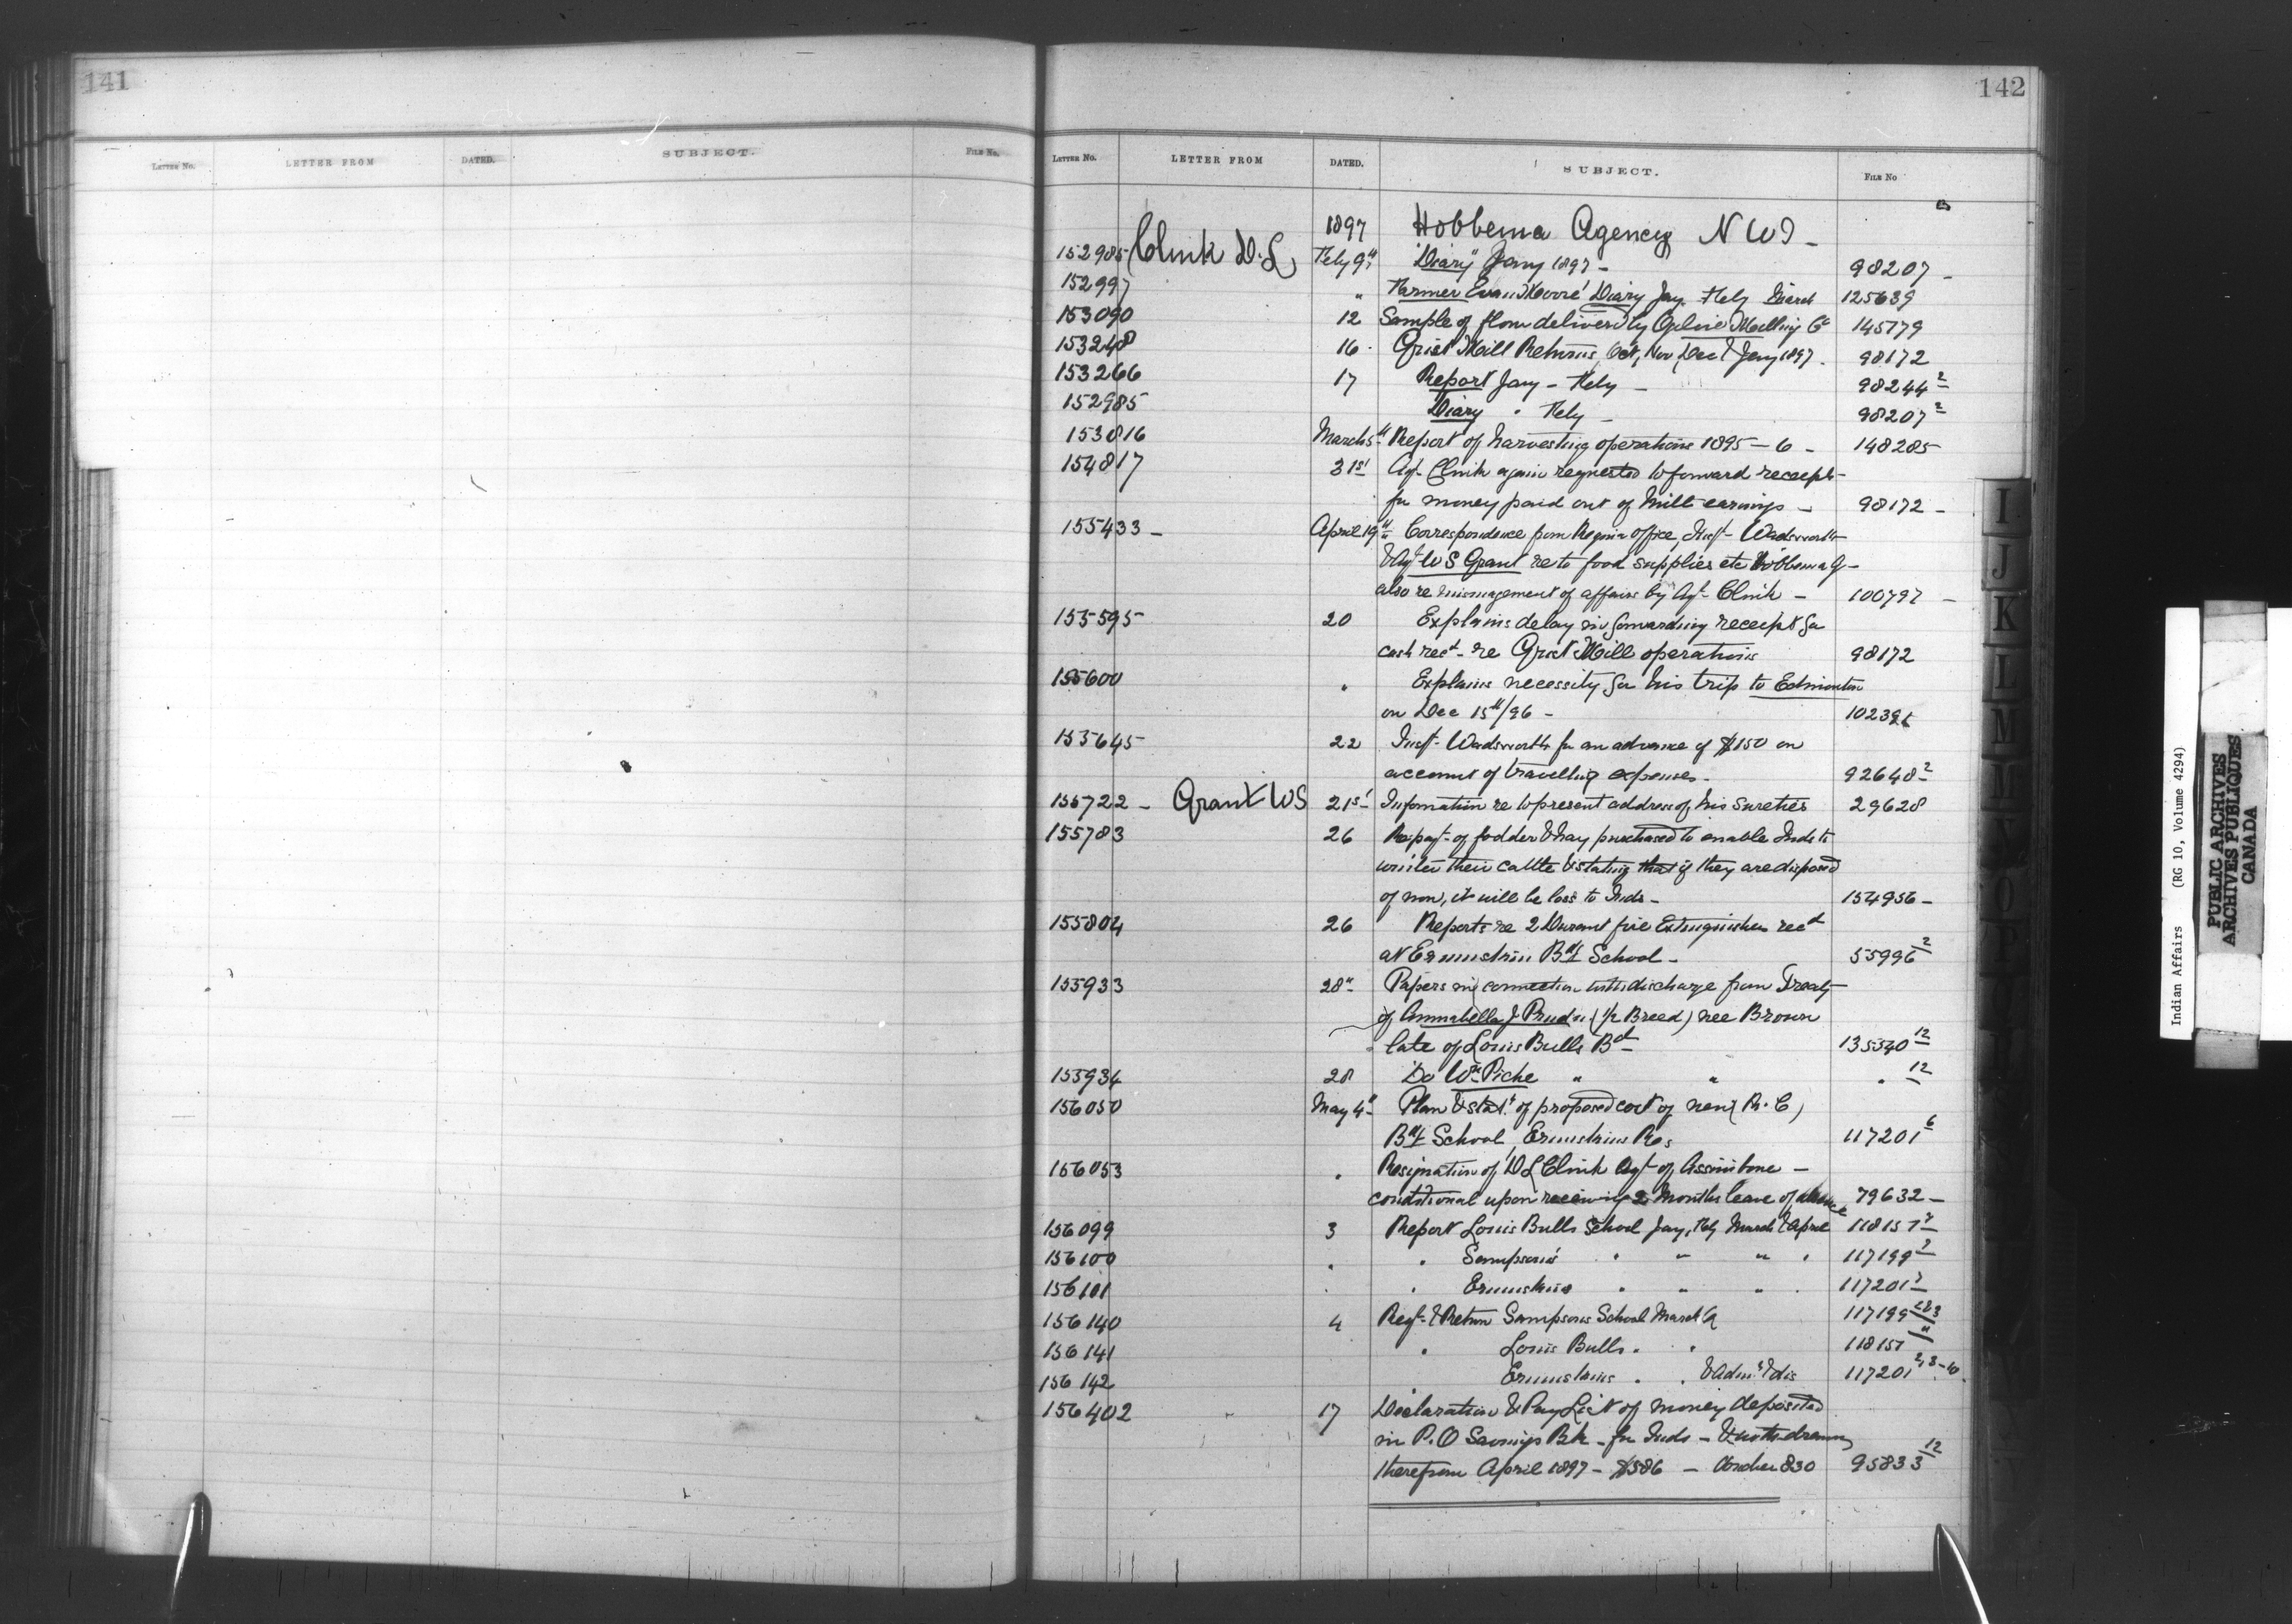 141
LETTER No. LETTER FROM DATED. SUBJECT. FILE No.
142
LETTER No. LETTER FROM DATED. SUBJECT. FILE No
1897 Hobbema Agency N W T -
152985 Clink D. L. Feby 9th "Diary" Jany 1897 - 98207 -
152997 " Farmer Evan Moore' Diary Jay. Feby March 125639
153090 12 Sample of flour delivered by Ogilvie Milling Co 145779
153248 16 Grist Mill Returns, Oct, Nov, Dec & Jany 1897. 98172
153266 17 Report Jany - Feby - 98244 2
152985 Diary " Feby - 98207 2
153816 March 5th Report of harvesting operations 1895 - 6 - 148285
154817 31st Agt. Clink again requested to forward receipt
for money paid out of Mill earnings - 98172 -
155433 - April 19th Correspondence from Regina office, Insp. Wadsworth
& Agt W S Grant re to food supplies etc Hobbema Ag -
also re mismagement of affairs by Agt. Clink - 100797 -
155595 20 Explains delay in forwarding receipt for
cash recd. re Grist Mill operations 98172
155600 " Explains necessity for his trip to Edmonton
on Dec 15th/96 -
155645 22 Insp. Wadsworth for an advance of $150 on
account of travelling expenses. 92648 2
155722 - Grant W S 21st Information re to present address of his sureties 29628
155783 26 of fodder & hay purchased to enable Inds to
winter their cattle & stating that if they are disposed
of now, it will be loss to Inds - 154956 -
155804 26 Reports re 2 fire Extinguishers recd
at Ermineskin Bdg School - 55996 2
155933 28th Papers in connection with discharge from Treaty
of Annabella J Pruden (1/2 Breed) nee Brown
late of Louis Bulls Bd 135340 12
155934 28 Do Wm Piche " " " 12
156050 May 4th Plan & stat. of proposed cost of new (R. C)
Bdg School, Ermineskins Res 117201 6
156053 " Resignation of D L Clink Agt. of Assinibone -
conditional upon receiving 2 Months leave of absence 79632 -
156099 3 Report Louis Bulls School Jany, Feby March & April 118157 2
156100 " " Sampsons " " " " 117199 2
156101 " " Ermineskins " " " " 117201 2
156140 4 Reqt. & Return Sampsons School March 117199 2 & 3
156141 " Louis Bulls " " 118157 "
156142 " Ermineskins " " & Adm. & dis 117201 2, 3 - 10
156402 17 Declaration & Pay List of money deposited
in P. O Savings Bk - for Inds - & withdrawn
therefrom April 1897 - $586 - Voucher 830 95833 12
I
J
K
L
M
Indian Affairs (RG 10, Volume 4294)
PUBLIC ARCHIVES
ARCHIVES PUBLIQUES
CANADA